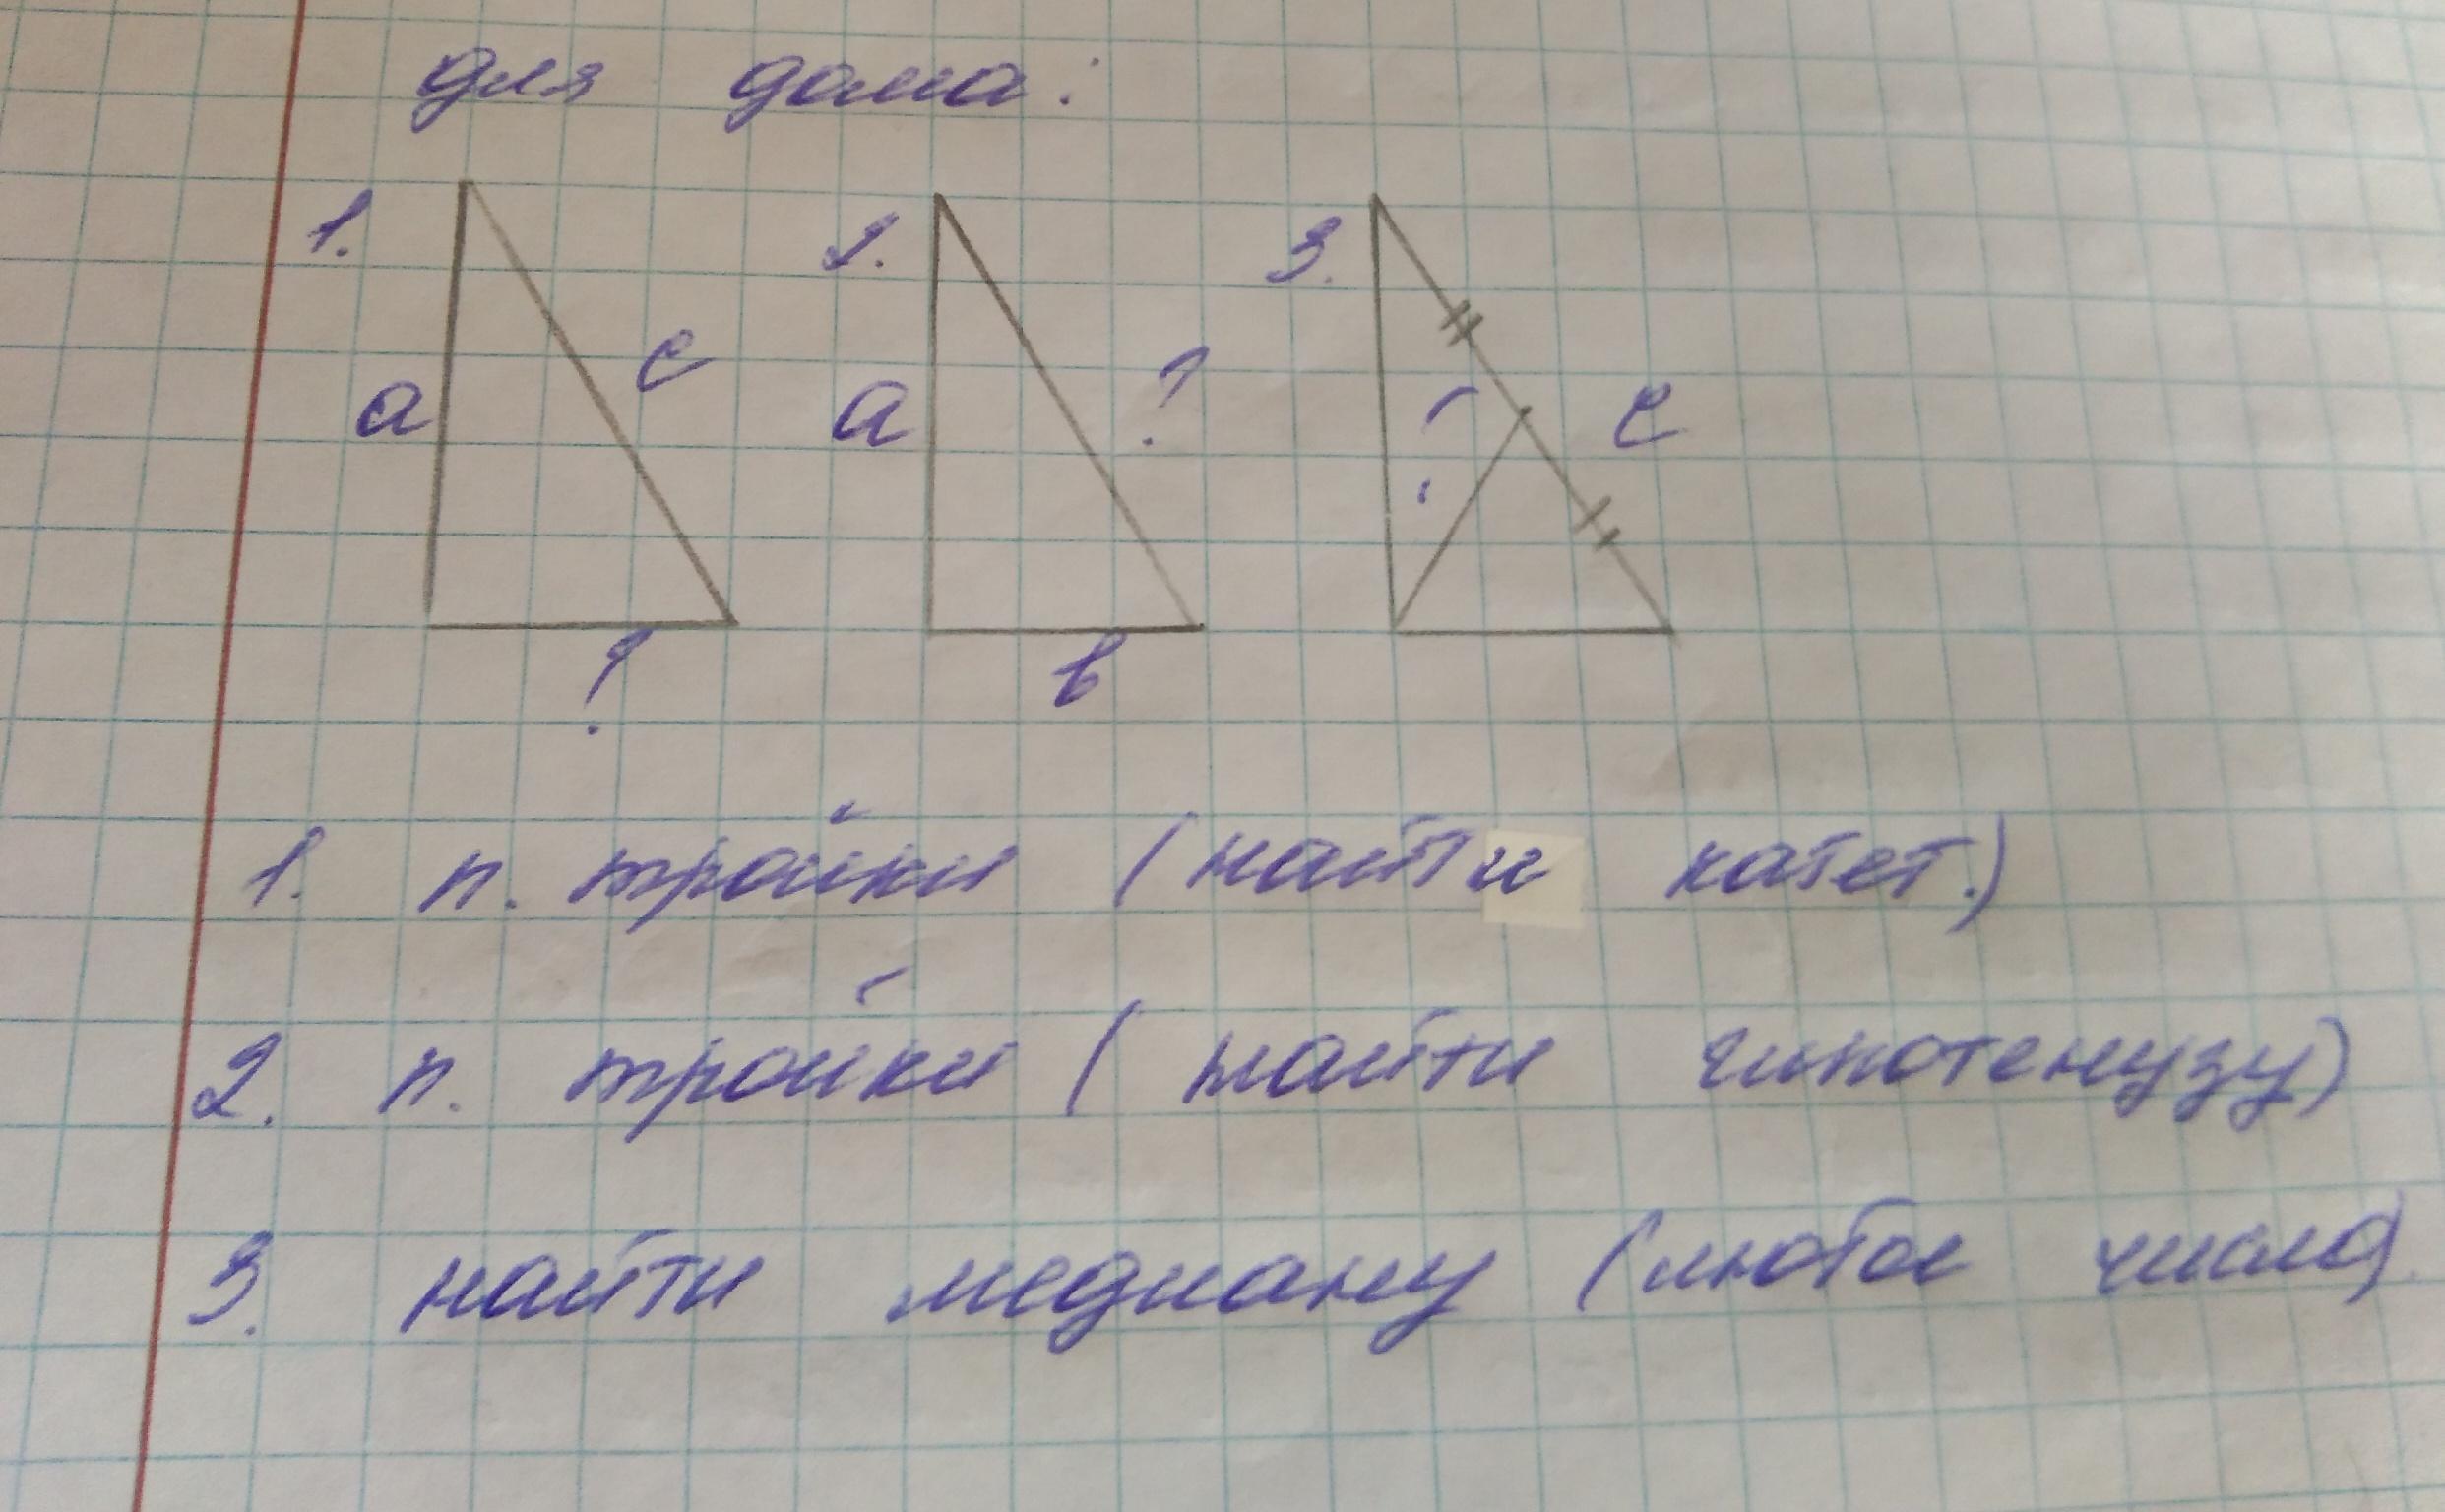 для дома:
1. 2. 3.
a c a ? ? c
? в
1. п. тройки (найти катет.)
2. п. тройки (найти гипотенузу)
3. найти медиану (любое число)